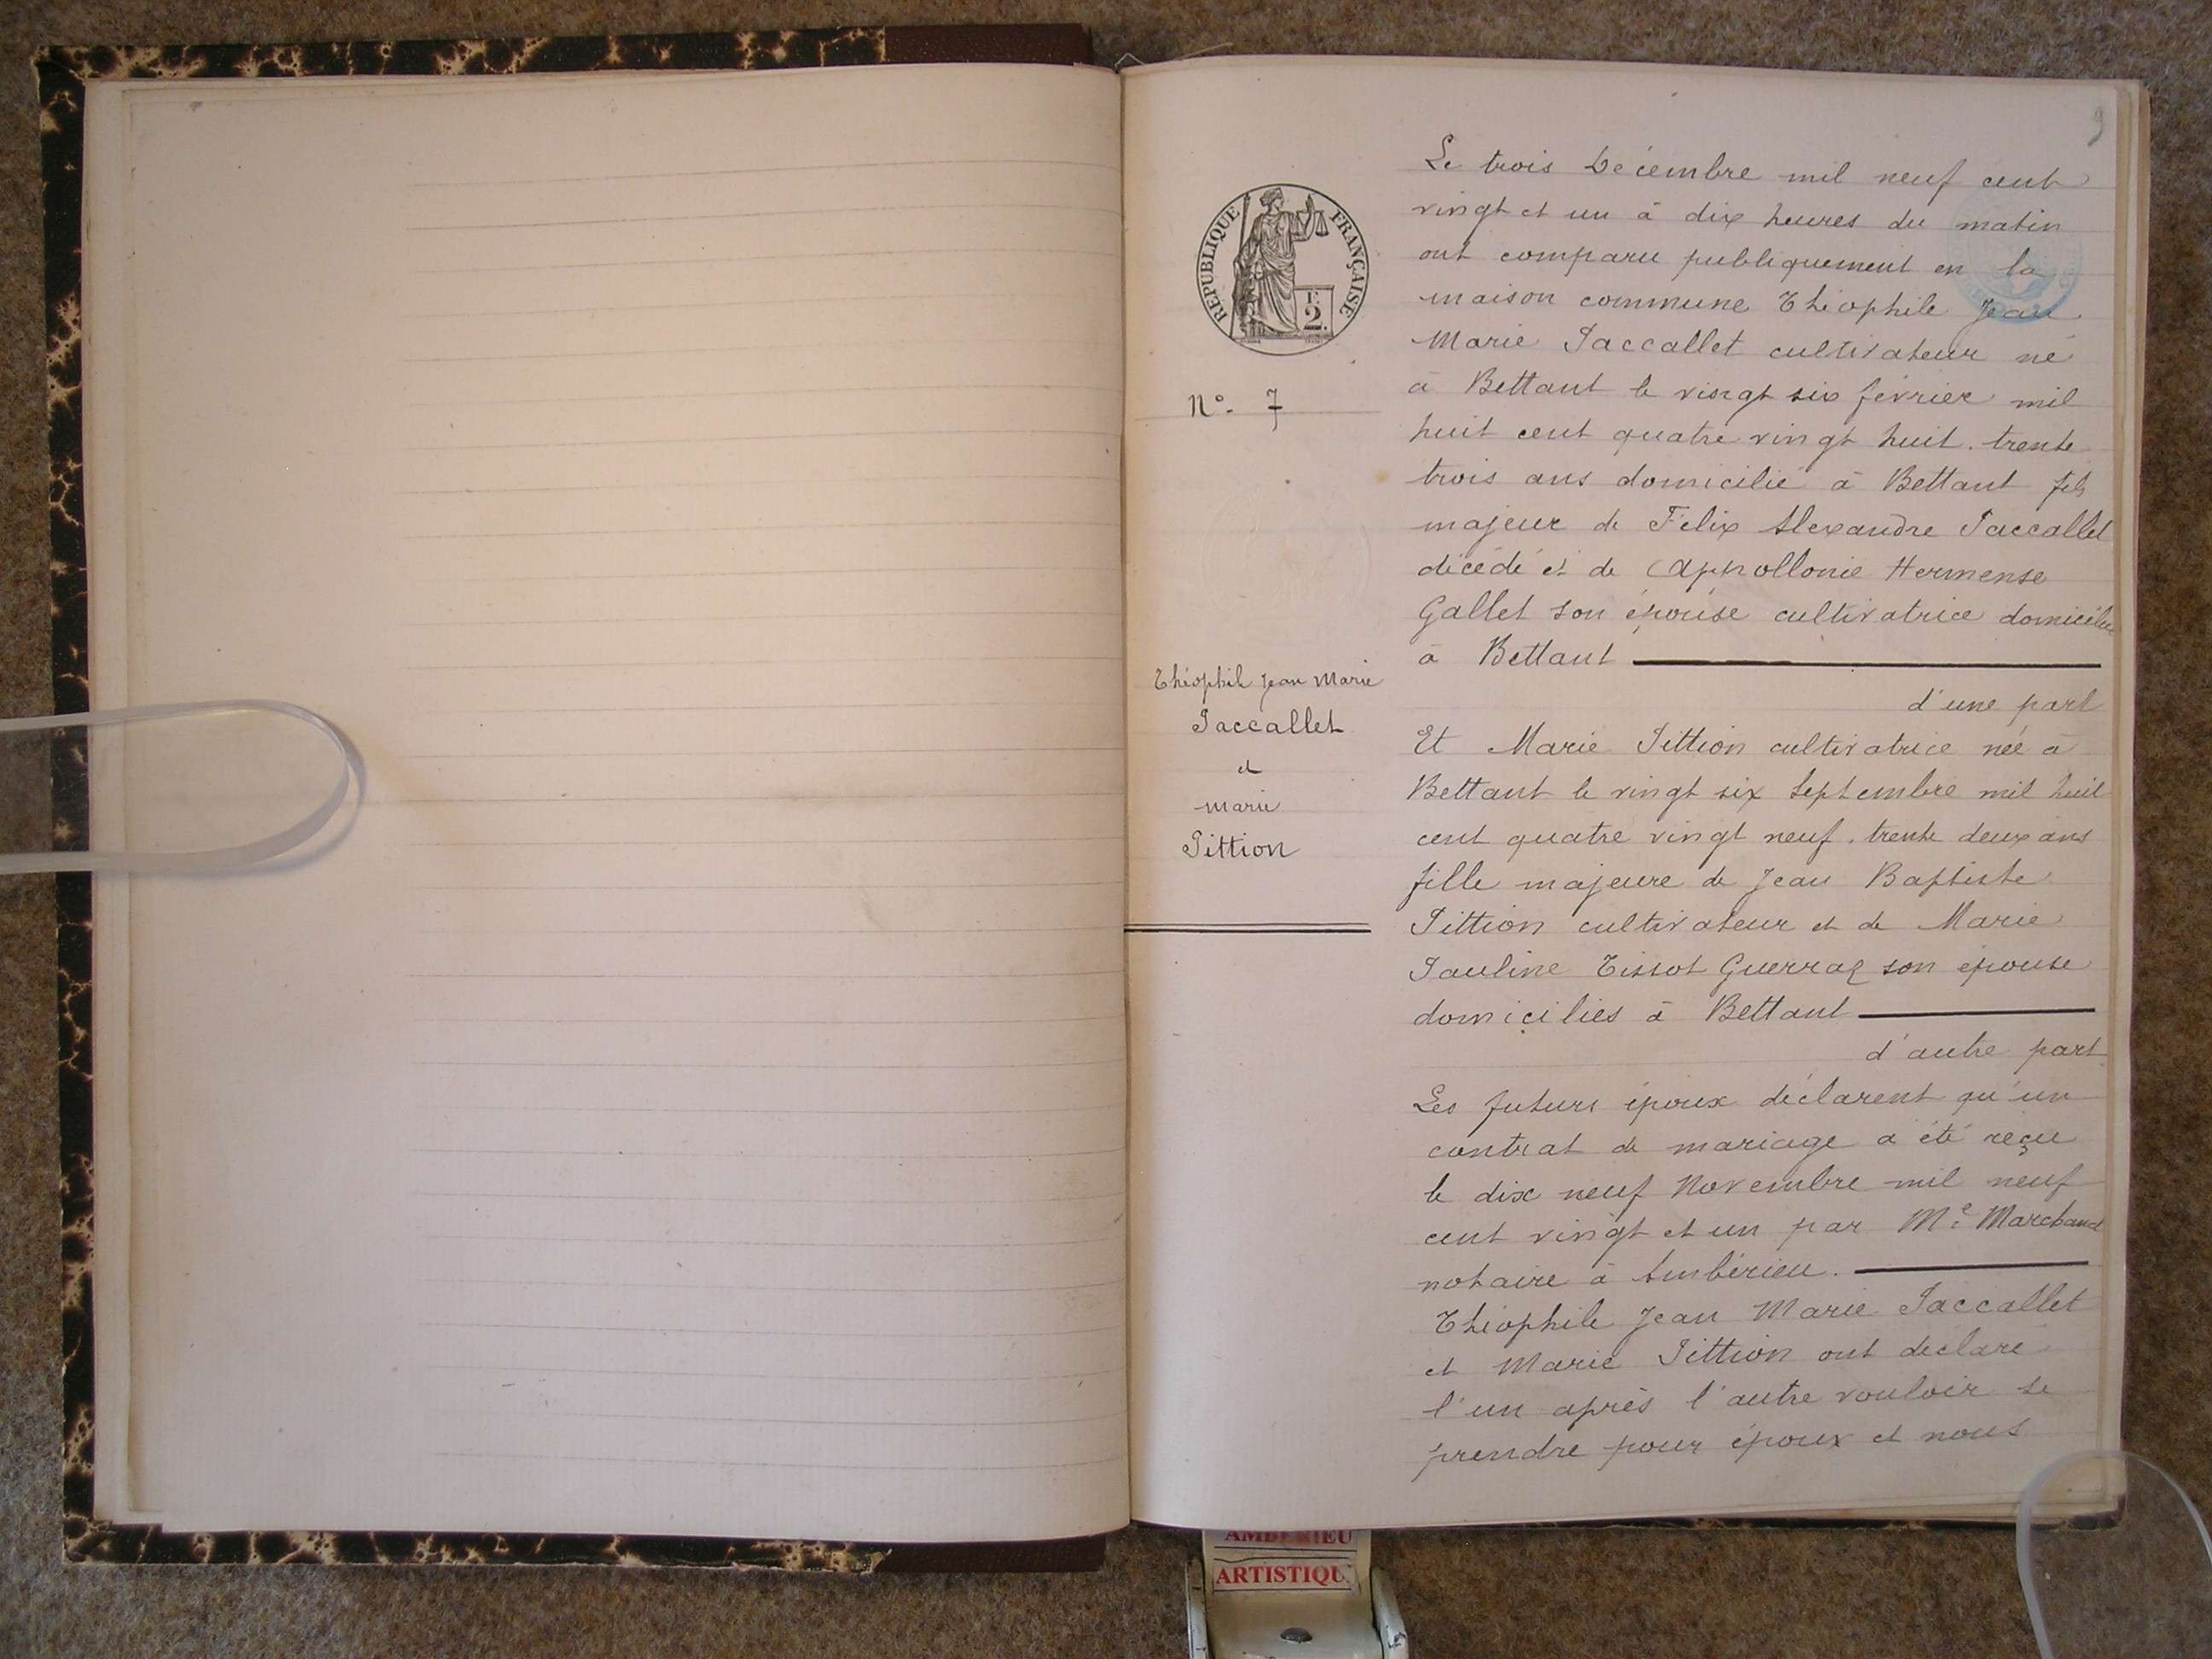 9
RÉPUBLIQUE FRANÇAISE
F.
2.
N° 7
Théophile Jean Marie
Paccallet
et
marie
Pittion
Le trois Décembre mil neuf cent
vingt et un à dix heures du matin
ont comparu publiquement en la
maison commune Théophile Jean
Marie Paccallet cultivateur né
à Bettant le vingt six février mil
huit cent quatre vingt huit. trente
trois ans domicilié à Bettant fils
majeur de Félix Alexandre Paccallet
décédé et de Appollonie Hermense
Gallet son épouse cultivatrice domiciliée
à Bettant
d'une part
Et Marie Pittion cultivatrice née à
Bettant le vingt six Septembre mil huit
cent quatre vingt neuf. trente deux ans
fille majeure de Jean Baptiste
Pittion cultivateur et de Marie
Pauline Tissot Guerraz son épouse
domiciliés à Bettant
d'autre part
Les futurs époux déclarent qu'un
contrat de mariage a été reçu
le dix neuf Novembre mil neuf
cent vingt et un par Me Marchand
notaire à Ambérieu.
Théophile Jean Marie Paccallet
et Marie Pittion ont déclaré
l'un après l'autre vouloir se
prendre pour époux et nous
AMBERIEU
ARTISTIQU